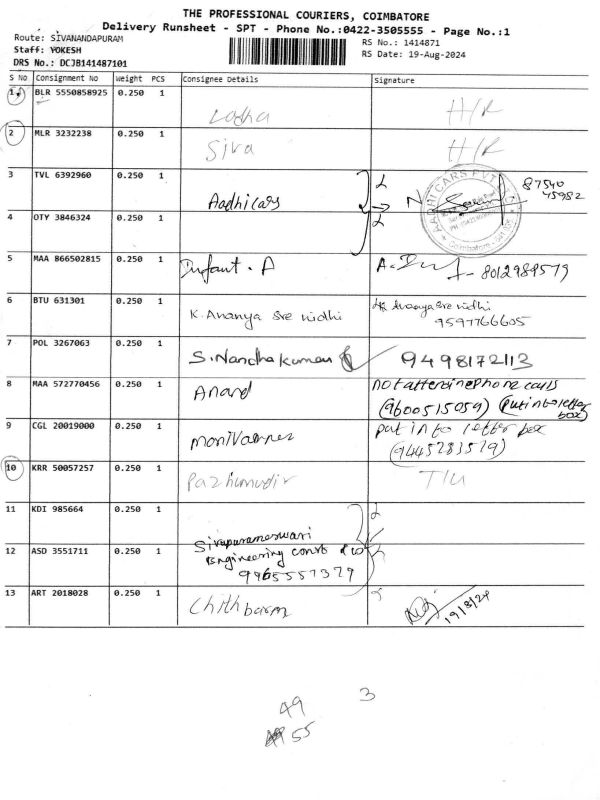 THE PROFESSIONAL COURIERS, COIMBATORE
Delivery Runsheet - SPT - Phone No.:0422-3505555 - Page No.:1
Route: SIVANANDAPURAM
RS No.: 1414871
Staff: YOKESH
RS Date: 19-Aug-2024
DRS No.: DCJB141487101
S No Consignment No Weight PCS Consignee Details Signature
1 BLR 5550858925 0.250 1 H/R
2 MLR 3232238 0.250 1 Siva H/R
3 TVL 6392960 0.250 1 Aadhicars 87540 45982
AADHI CARS PVT LTD
4 OTY 3846324 0.250 1
5 MAA 866502815 0.250 1 Infant. A 8012989579
6 BTU 631301 0.250 1 K. Ananya Sre nidhi Ananya Sre nidhi
9597766605
7 POL 3267063 0.250 1 S. Nandhakumar 9498172113
8 MAA 572770456 0.250 1 Anand not attending phone calls
(9600515059) (put into letter box)
9 CGL 20019000 0.250 1 put in to letter box
(9445283579)
10 KRR 50057257 0.250 1 Pazhmudir
11 KDI 985664 0.250 1
Sivaparameswari
12 ASD 3551711 0.250 1 Engineering const
9965557379
13 ART 2018028 0.250 1 19/8/24
49 3
55